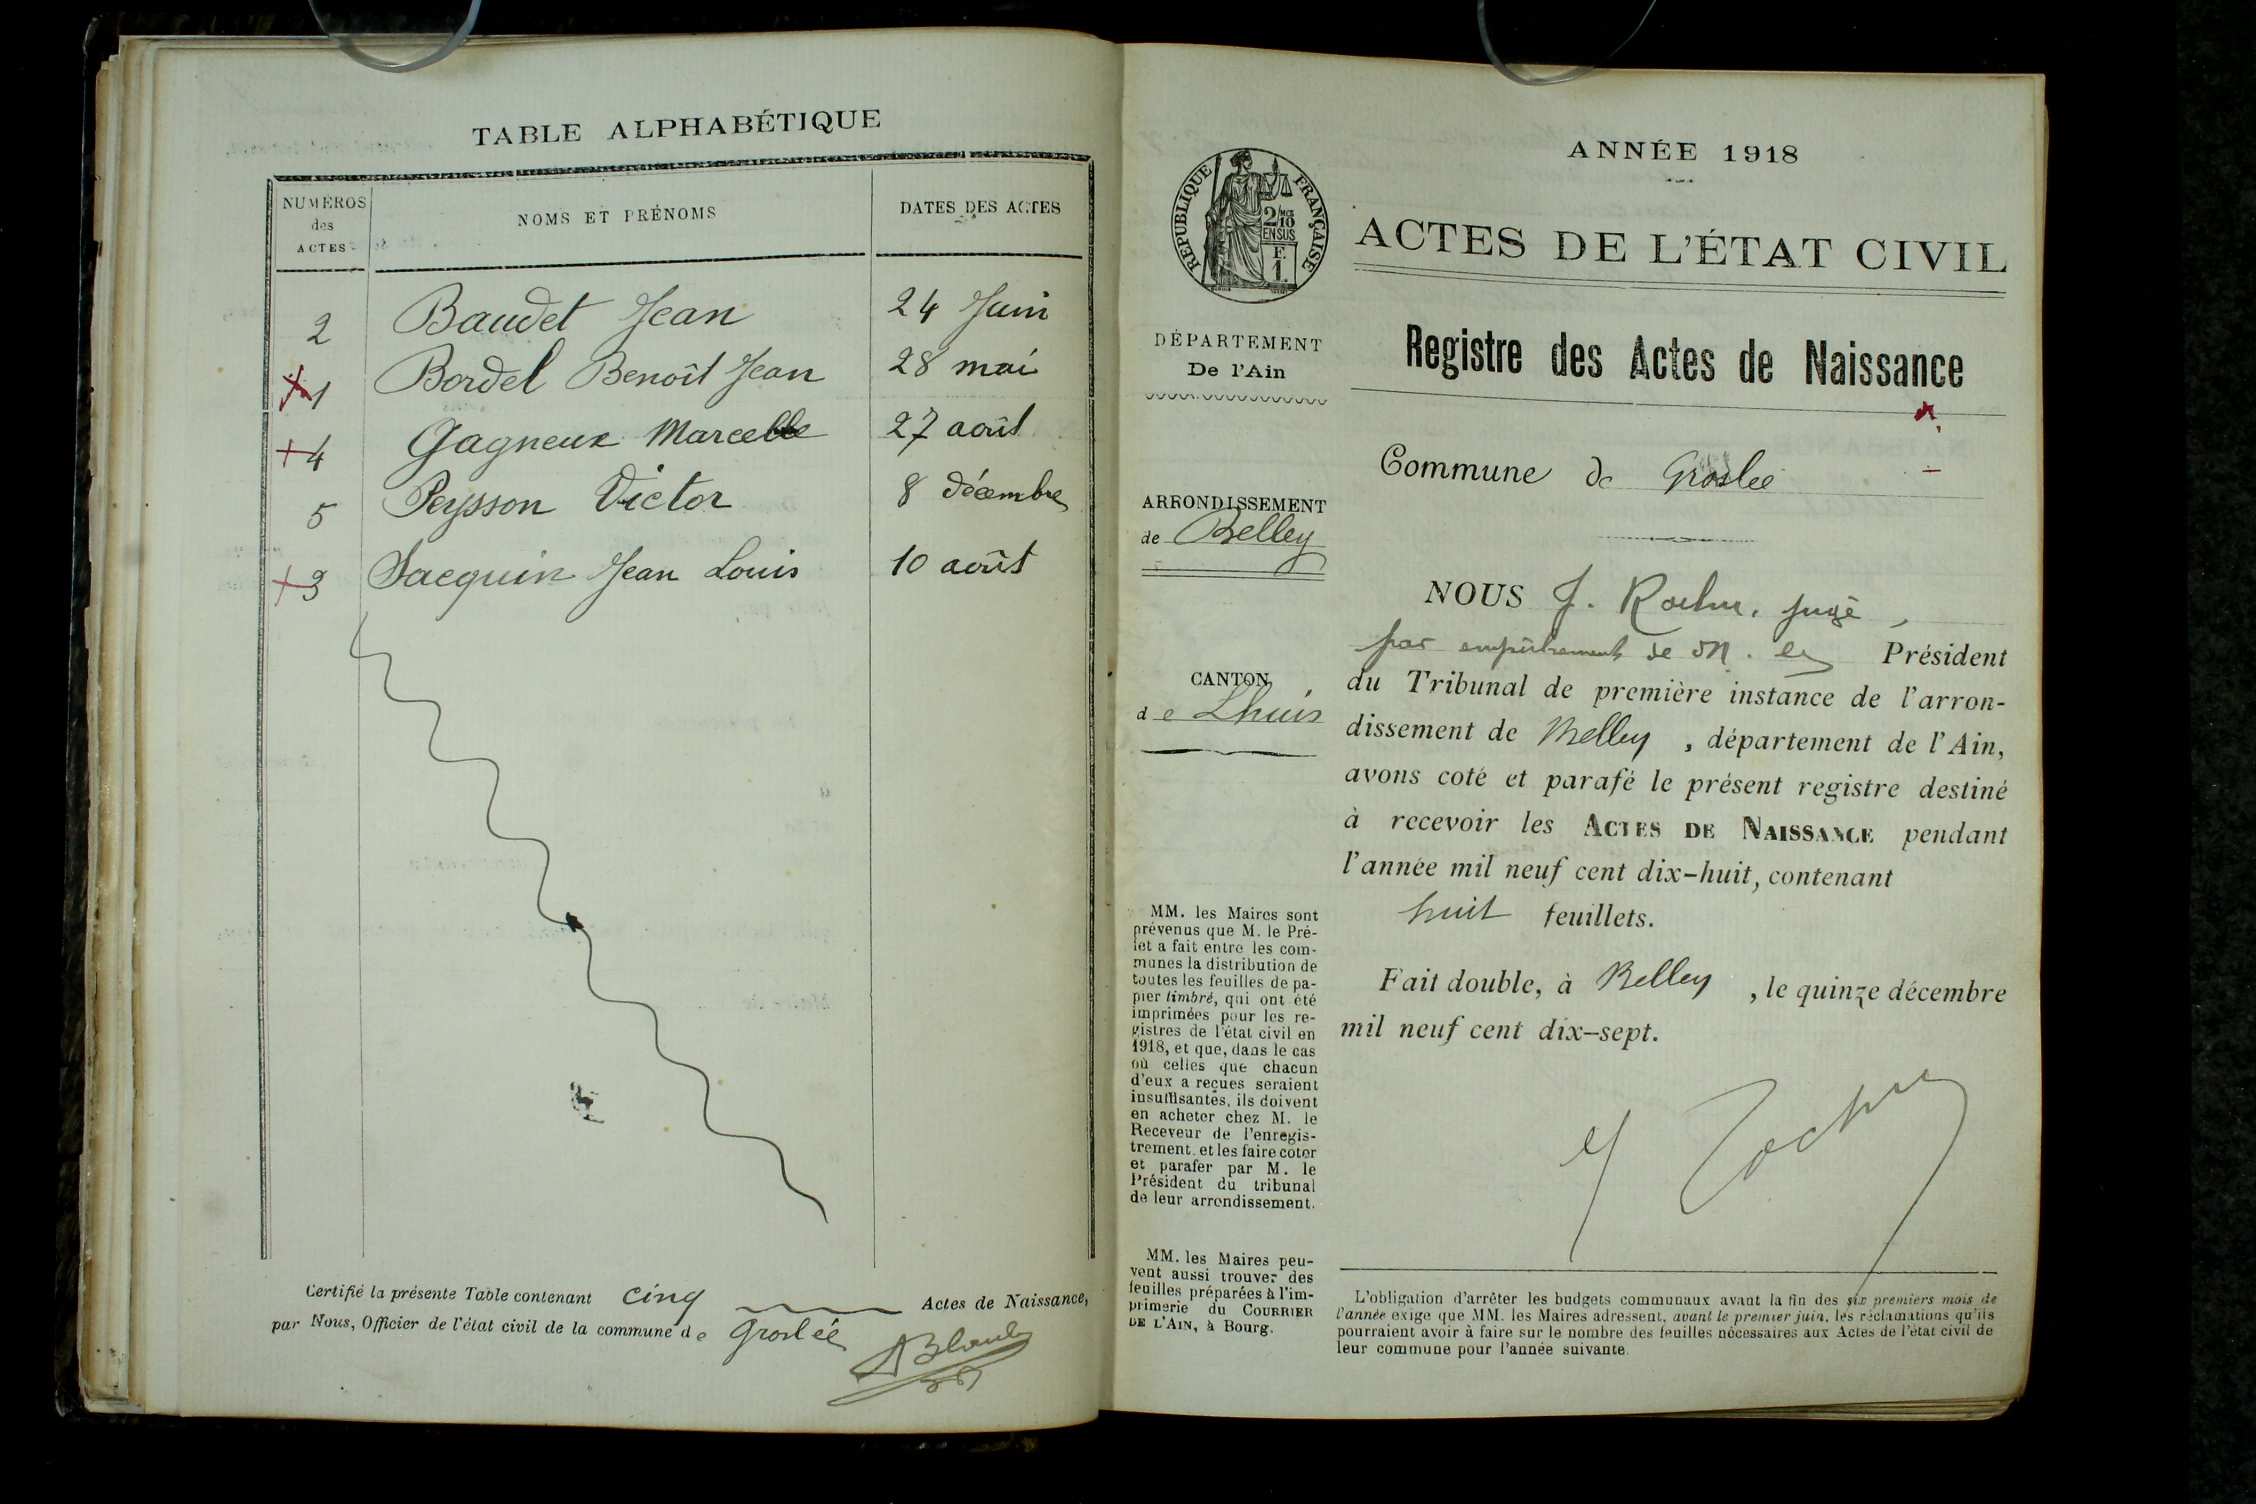 TABLE ALPHABÉTIQUE
NUMÉROS
des
ACTES
NOMS ET PRÉNOMS
DATES DES ACTES
2 Baudet Jean 24 Juin
1 Bordel Benoît Jean 28 mai
4 Gagneux Marcelle 27 août
5 Peysson Victor 8 décembre
3 Sacquin Jean Louis 10 août
Certifié la présente Table contenant cinq Actes de Naissance,
par Nous, Officier de l'état civil de la commune de Groslée
RÉPUBLIQUE FRANÇAISE
2/10
EN SUS
F.
1.
DÉPARTEMENT
De l'Ain
ARRONDISSEMENT
de Belley
CANTON
de Lhuis
MM. les Maires sont
prévenus que M. le Pré-
fet a fait entre les com-
munes la distribution de
toutes les feuilles de pa-
pier timbré, qui ont été
imprimées pour les re-
gistres de l'état civil en
1918, et que, dans le cas
où celles que chacun
d'eux a reçues seraient
insuffisantes, ils doivent
en acheter chez M. le
Receveur de l'enregis-
trement, et les faire coter
et parafer par M. le
Président du tribunal
de leur arrondissement.
MM. les Maires peu-
vent aussi trouver des
feuilles préparées à l'im-
primerie du COURRIER
DE L'AIN, à Bourg.
ANNÉE 1918
ACTES DE L'ÉTAT CIVIL
Registre des Actes de Naissance
Commune de Groslee
NOUS J. juge
par empêchement de M. le Président
du Tribunal de première instance de l'arron-
dissement de Belley, département de l'Ain,
avons coté et parafé le présent registre destiné
à recevoir les ACTES DE NAISSANCE pendant
l'année mil neuf cent dix-huit, contenant
huit feuillets.
Fait double, à Belley, le quinze décembre
mil neuf cent dix-sept.
L'obligation d'arrêter les budgets communaux avant la fin des six premiers mois de
l'année exige que MM. les Maires adressent, avant le premier juin, les réclamations qu'ils
pourraient avoir à faire sur le nombre des feuilles nécessaires aux Actes de l'état civil de
leur commune pour l'année suivante.